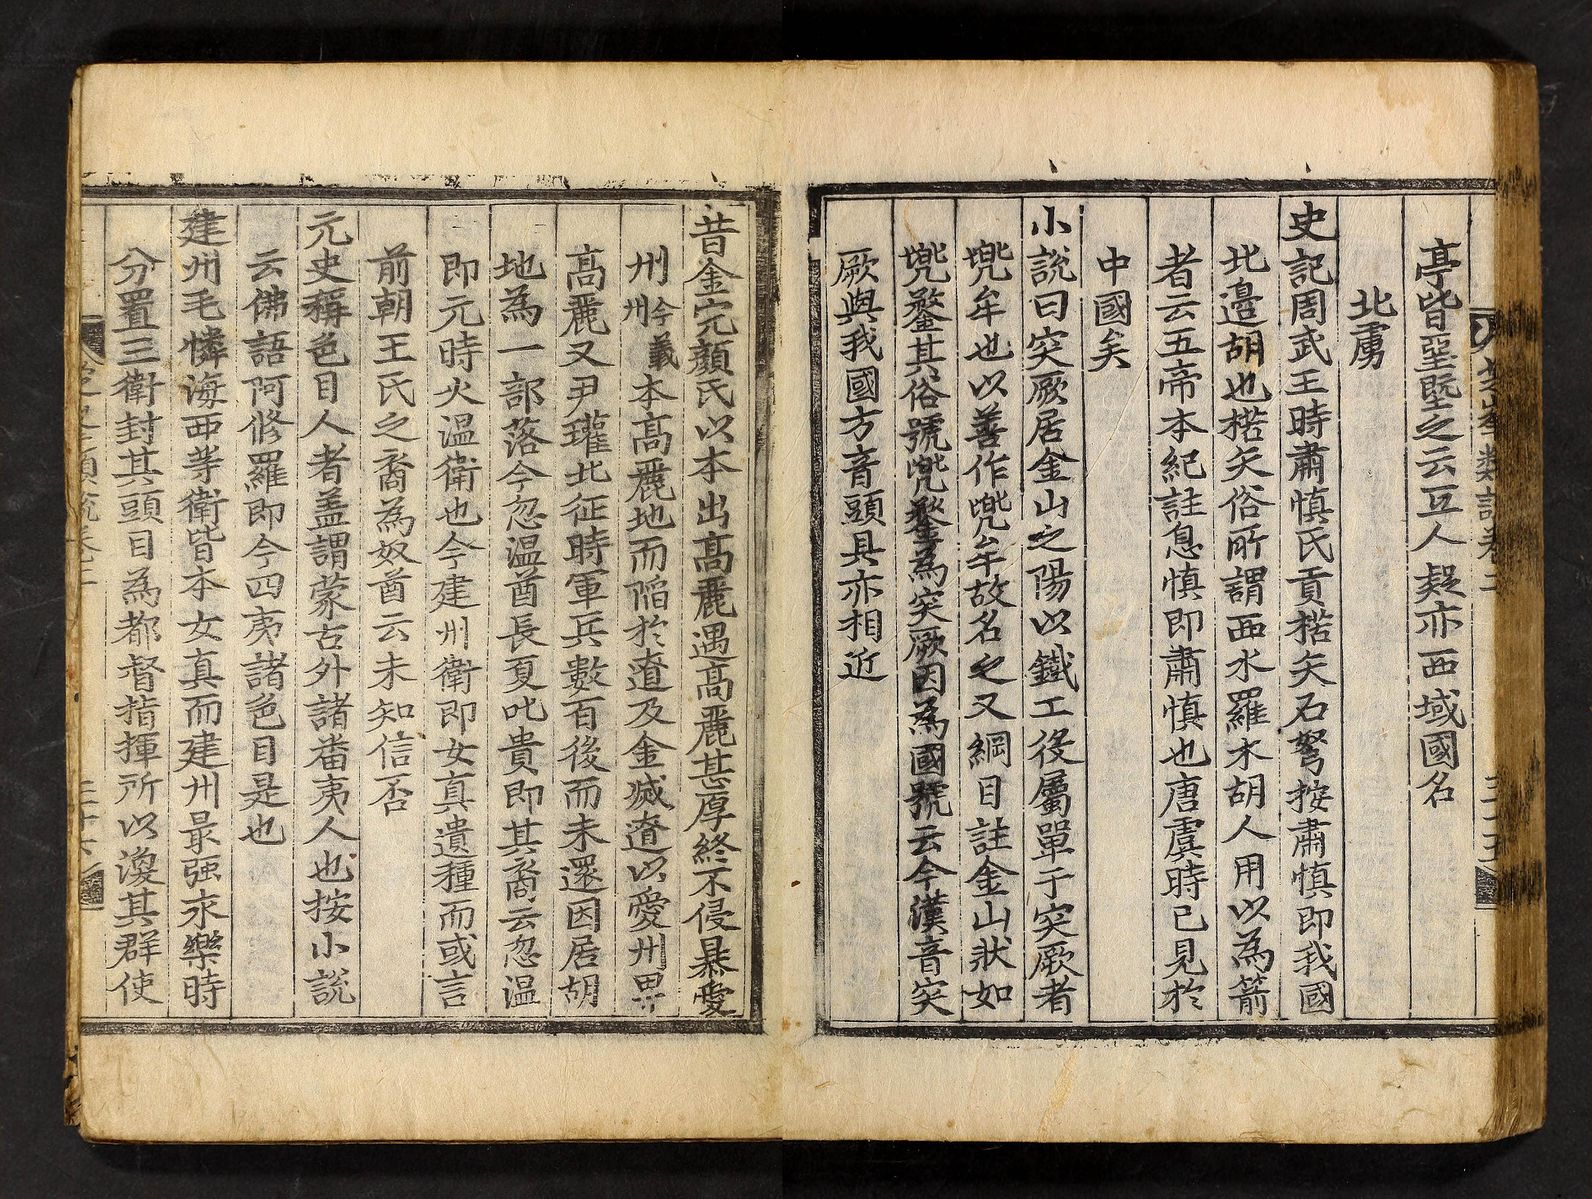 亭皆堊墍之云互人疑亦西域國名
北虜
史記周武王時肅慎氏貢楛矢石砮按肅慎即我國
北邊胡也楛矢俗所謂西水羅木胡人用以為箭
者云五帝本紀註息慎即肅慎也唐虞時已見於
中國矣
小說曰突厥居金山之陽以鐵工役屬單于突厥者
兠牟也以善作兠牟故名之又綱目註金山狀如
兠鍪其俗號兠鍪為突厥因為國號云今漢音突
厥與我國方音頭具亦相近
昔金完顏氏以本出高麗遇高麗甚厚終不侵暴愛
州今義州本高麗地而陷於遼及金滅遼以愛州畀
高麗又尹瓘北征時軍兵數百後而未還因居胡
地為一部落今忽溫酋長夏叱貴即其裔云忽溫
即元時火溫衛也今建州衛即女真遺種而或言
前朝王氏之裔為奴酋云未知信否
元史稱色目人者盖謂蒙古外諸番夷人也按小說
云佛語阿修羅即今四夷諸色目是也
建州毛憐海西等衛皆本女真而建州最强永樂時
分置三衛封其頭目為都督指揮所以渙其群使